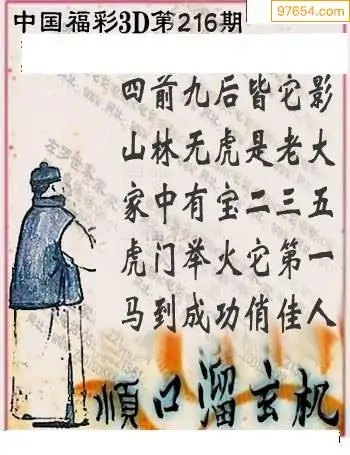 97654.com
中国福彩3D第216期
四前九后皆它影
山林无虎是老大
家中有宝二三五
虎门举火它第一
马到成功俏佳人
顺口溜玄机